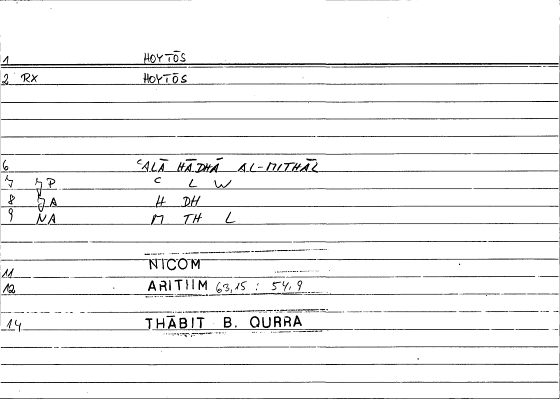 1 HOYTŌS
2 RX HOYTŌS
6 ʿALĀ HĀDHĀ AL-MITHĀL
7 JP ʿ L W
8 JA H DH
9 NA M TH L
11 NICOM
12 ARITHM 63,15 : 54,9
14 THĀBIT B. QURRA